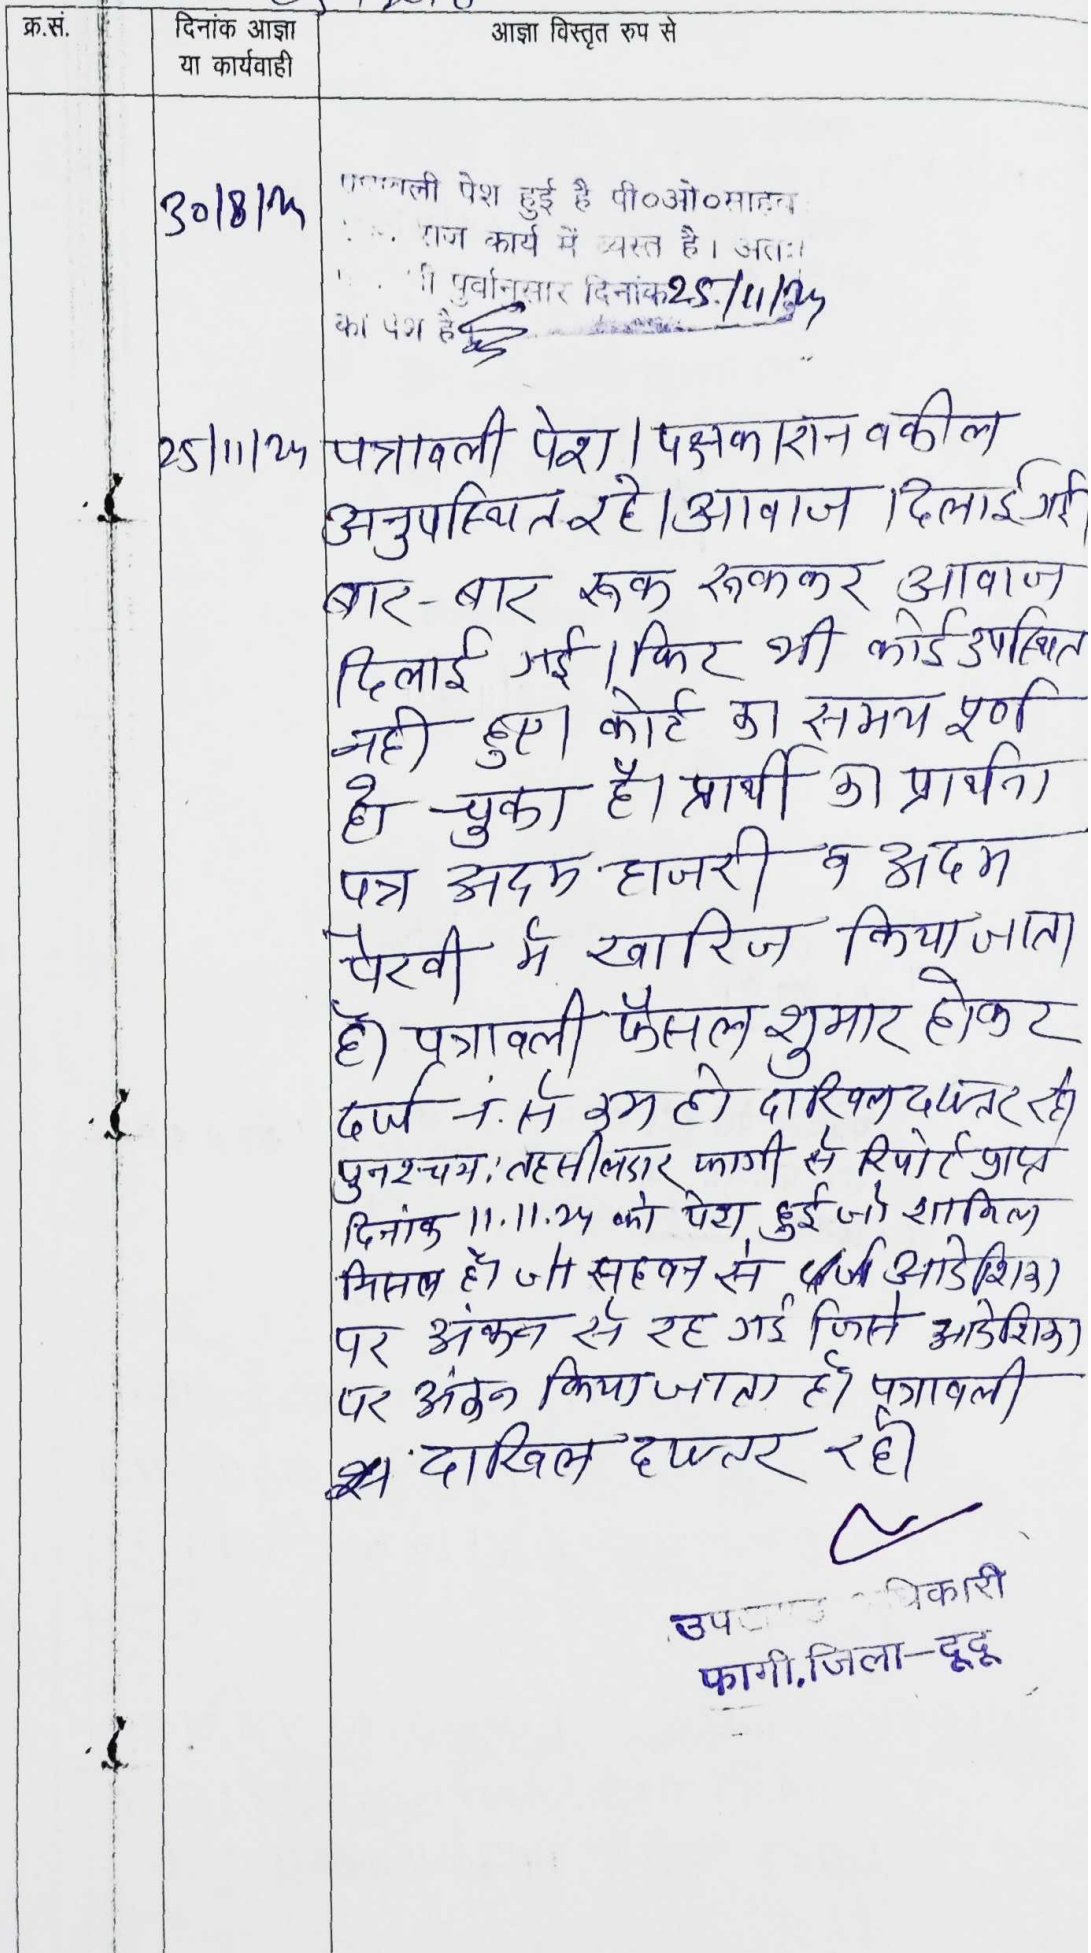 क्र.सं.
दिनांक आज्ञा
या कार्यवाही
आज्ञा विस्तृत रुप से
30/8/24
पेश हुई है पी०ओ०साहब
राज कार्य में व्यस्त है। अतः
पुर्वानुसार दिनांक 25/11/24
को पेश है
25/11/24
पत्रावली पेश। पक्षकारान वकील
अनुपस्थित रहे। आवाज दिलाई गई।
बार-बार रूक रूककर आवाज
दिलाई गई। फिर भी कोई उपस्थित
नही हुए। कोर्ट का समय पूर्ण
हो चुका है। प्रार्थी का प्रार्थना
पत्र अदम हाजरी व अदम
पैरवी मे खारिज किया जाता
है। पत्रावली फैसल शुमार होकर
दर्ज नं. से कम हो दाखिल दफ्तर रहे।
पुनश्चय: तहसीलदार फागी से रिपोर्ट प्राप्त
दिनांक 11.11.24 को पेश हुई जो शामिल
मिसल है। जो सहवन से आदेशिका
पर अंकन से रह गई जिसे आदेशिका
पर अंकन किया जाता है। पत्रावली
दाखिल दफ्तर रहे।
फागी, जिला-दूदू